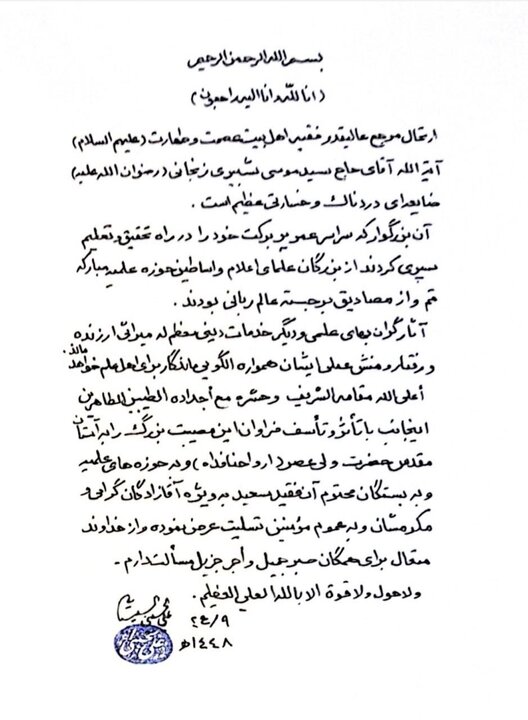 بسم الله الرحمن الرحیم
(انا لله وانا الیه راجعون)
ارتحال مرجع عالیقدر فقیه اهل بیت عصمت و طهارت (علیهم السلام)
آیة الله آقای حاج سید موسی شبیری زنجانی (رضوان الله علیه)
ضایعه‌ای دردناک و خسارتی عظیم است .
آن بزرگوار که سراسر عمر پر برکت خود را در راه تحقیق و تعلیم
سپری کردند از بزرگان علمای اعلام و اساطین حوزه علمیه مبارکه
قم و از مصادیق برجسته عالم ربانی بودند .
آثار گران بهای علمی و دیگر خدمات دینی معظم له میراثی ارزنده
و رفتار و منش عملی ایشان همواره الگویی ماندگار برای اهل علم خواهد ماند.
أعلی الله مقامه الشریف وحشره مع أجداده الطیبین الطاهرین
اینجانب با تأثر و تأسف فراوان این مصیبت بزرگ را به آستان
مقدس حضرت ولی عصر (ارواحنا فداه) و به حوزه های علمیه
و به بستگان محترم آن فقید سعید به ویژه آقازادگان گرامی و
مکرمشان و به عموم مؤمنین تسلیت عرض نموده و از خداوند
متعال برای همگان صبر جمیل و أجر جزیل مسألت دارم .
ولا حول ولا قوة الا بالله العلي العظیم .
علی الحسینی السیستانی
٢٤/٩
١٤٤٨ه